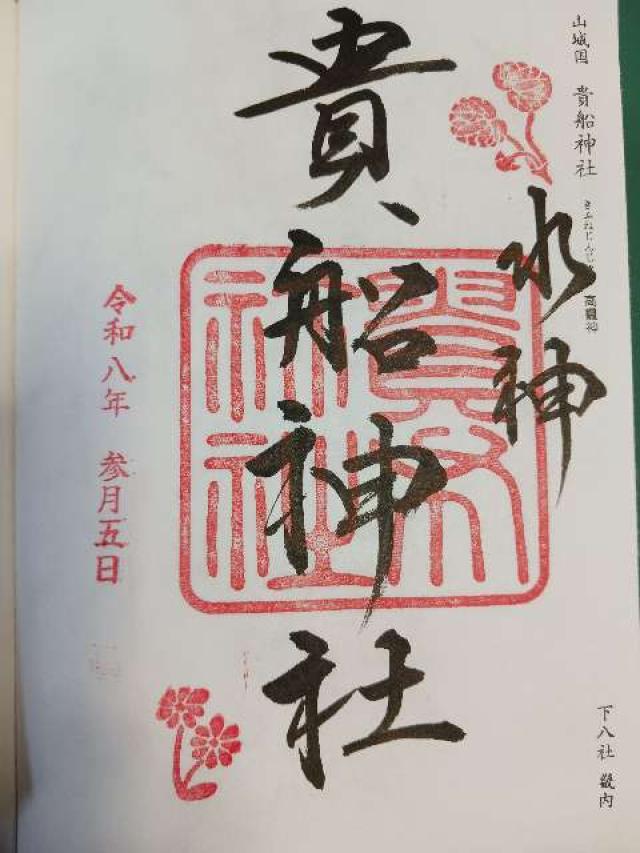 山城国 貴船神社
きふねじんじ
高龗神
下八社 畿内
水神
貴船神社
令和八年 参月五日